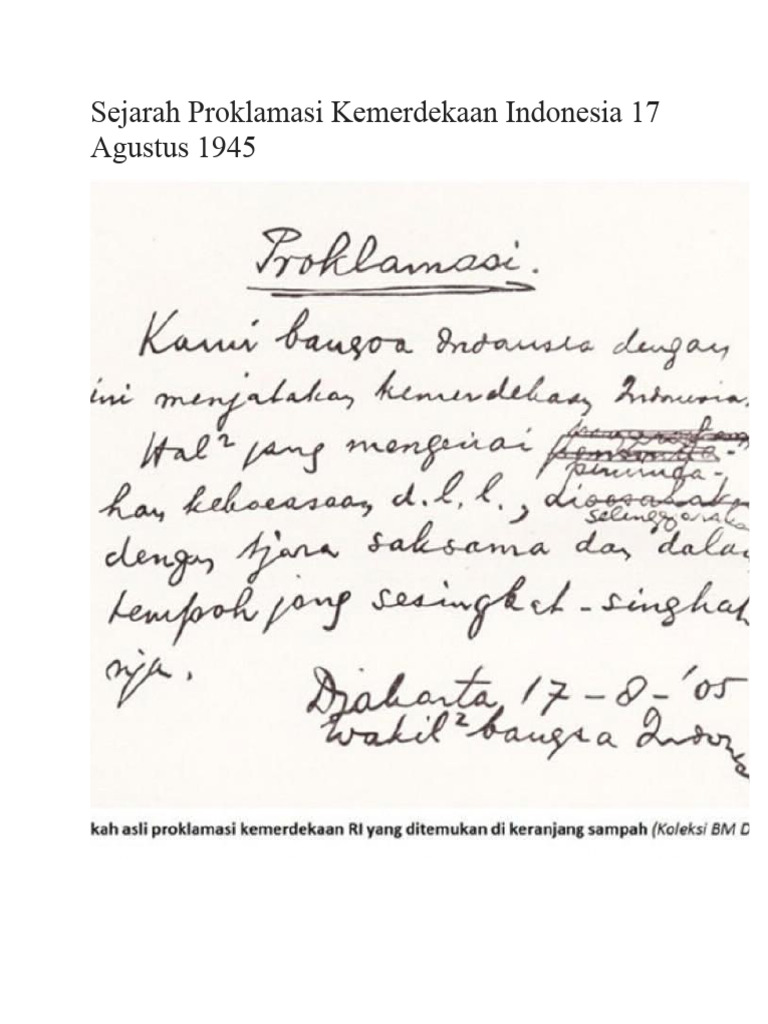 Sejarah Proklamasi Kemerdekaan Indonesia 17
Agustus 1945
Proklamasi.
Kami bangsa Indonesia dengan
ini menjatakan kemerdekaan Indonesia.
Hal² jang mengenai
peminda-
han kekoeasaan d.l.l., dioesahakan
selenggaraka
dengan tjara saksama dan dala
tempoh jang sesingkat-singkat
nja.
Djakarta, 17-8-'05
Wakil² bangsa Indon
kah asli proklamasi kemerdekaan RI yang ditemukan di keranjang sampah (Koleksi BM D